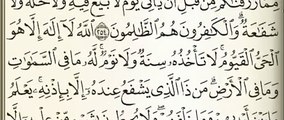 مِمَّا رَزَقْنَٰكُم مِّن قَبْلِ أَن يَأْتِىَ يَوْمٌ لَّا بَيْعٌ فِيهِ وَلَا خُلَّةٌ وَلَا
شَفَٰعَةٌ ۗ وَٱلْكَٰفِرُونَ هُمُ ٱلظَّٰلِمُونَ ٢٥٤ ٱللَّهُ لَآ إِلَٰهَ إِلَّا هُوَ
ٱلْحَىُّ ٱلْقَيُّومُ ۚ لَا تَأْخُذُهُۥ سِنَةٌ وَلَا نَوْمٌ ۚ لَّهُۥ مَا فِى ٱلسَّمَٰوَٰتِ
وَمَا فِى ٱلْأَرْضِ ۗ مَن ذَا ٱلَّذِى يَشْفَعُ عِندَهُۥٓ إِلَّا بِإِذْنِهِۦ ۚ يَعْلَمُ
مَا بَيْنَ أَيْدِيهِمْ وَمَا خَلْفَهُمْ ۖ وَلَا يُحِيطُونَ بِشَىْءٍ مِّنْ عِلْمِهِۦٓ إِلَّا